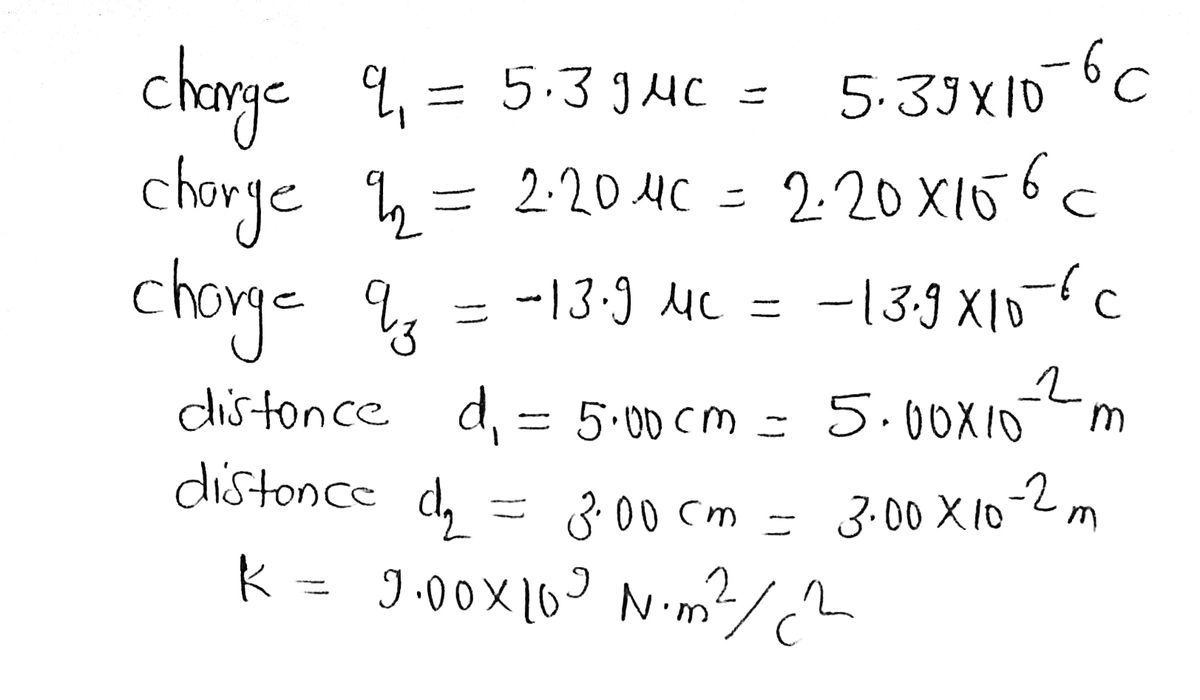 charge q₁ = 5.39 μC = 5.39×10⁻⁶ C
charge q₂ = 2.20 μC = 2.20×10⁻⁶ C
charge q₃ = -13.9 μC = -13.9×10⁻⁶ C
distance d₁ = 5.00 cm = 5.00×10⁻² m
distance d₂ = 3.00 cm = 3.00×10⁻² m
k = 9.00×10⁹ N·m²/C²